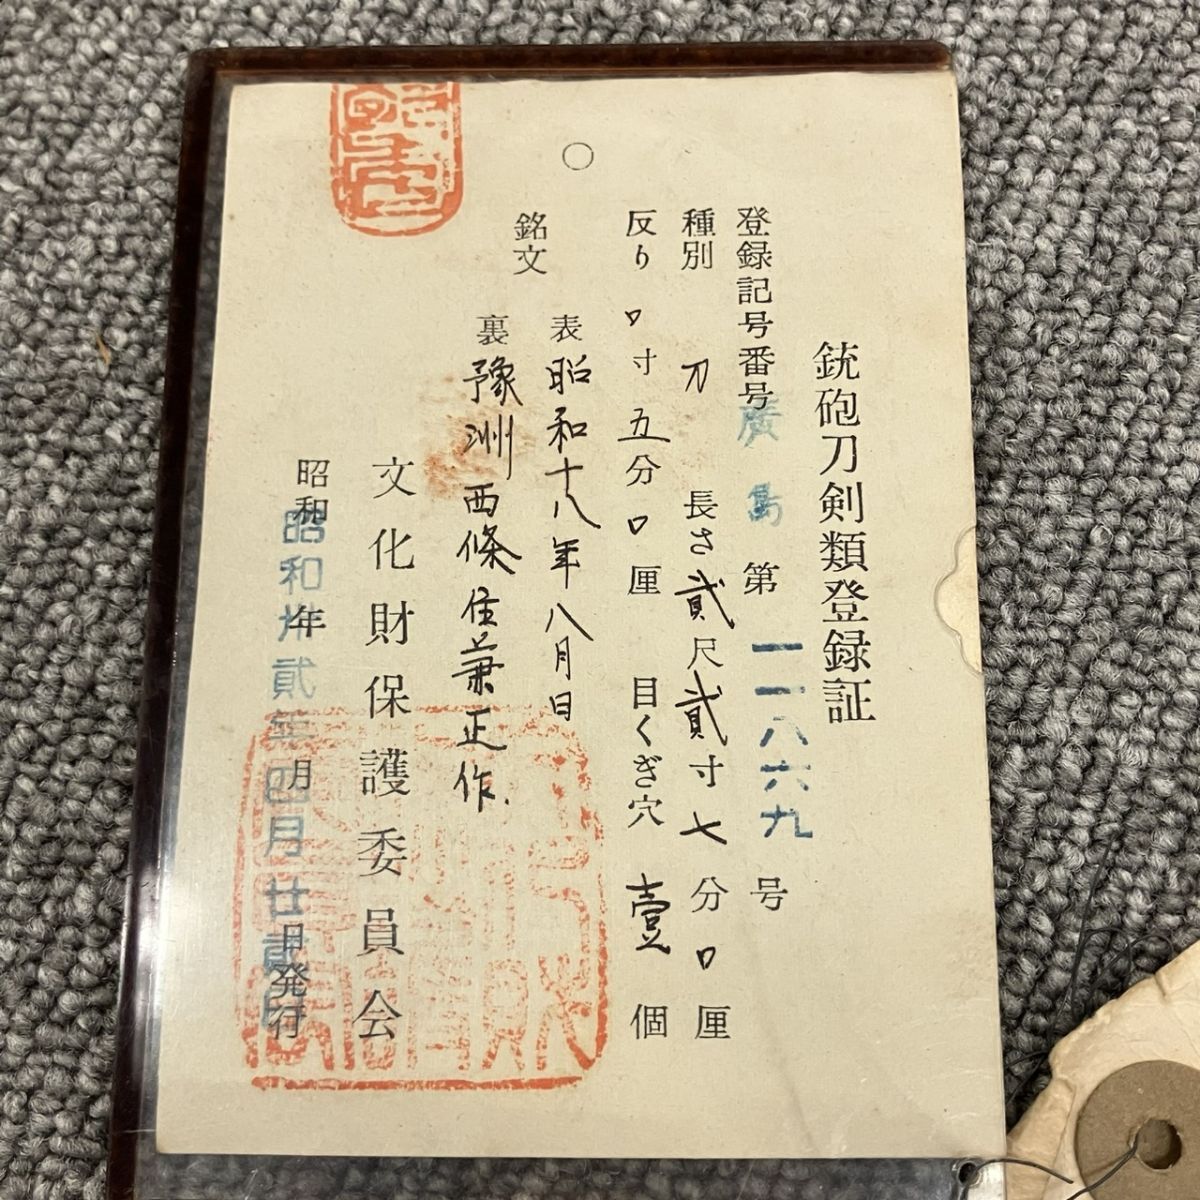 銃砲刀剣類登録証
登録記号番号 廣島 第 一一八六九 号
種別 刀 長さ 貳尺貳寸七分口厘
反り 口寸五分口厘 目くぎ穴 壹 個
銘文
表 昭和十八年八月日
裏 豫洲西條住兼正作
文化財保護委員会
昭和 年 月 日発行
昭和卅貳年四月廿貳日